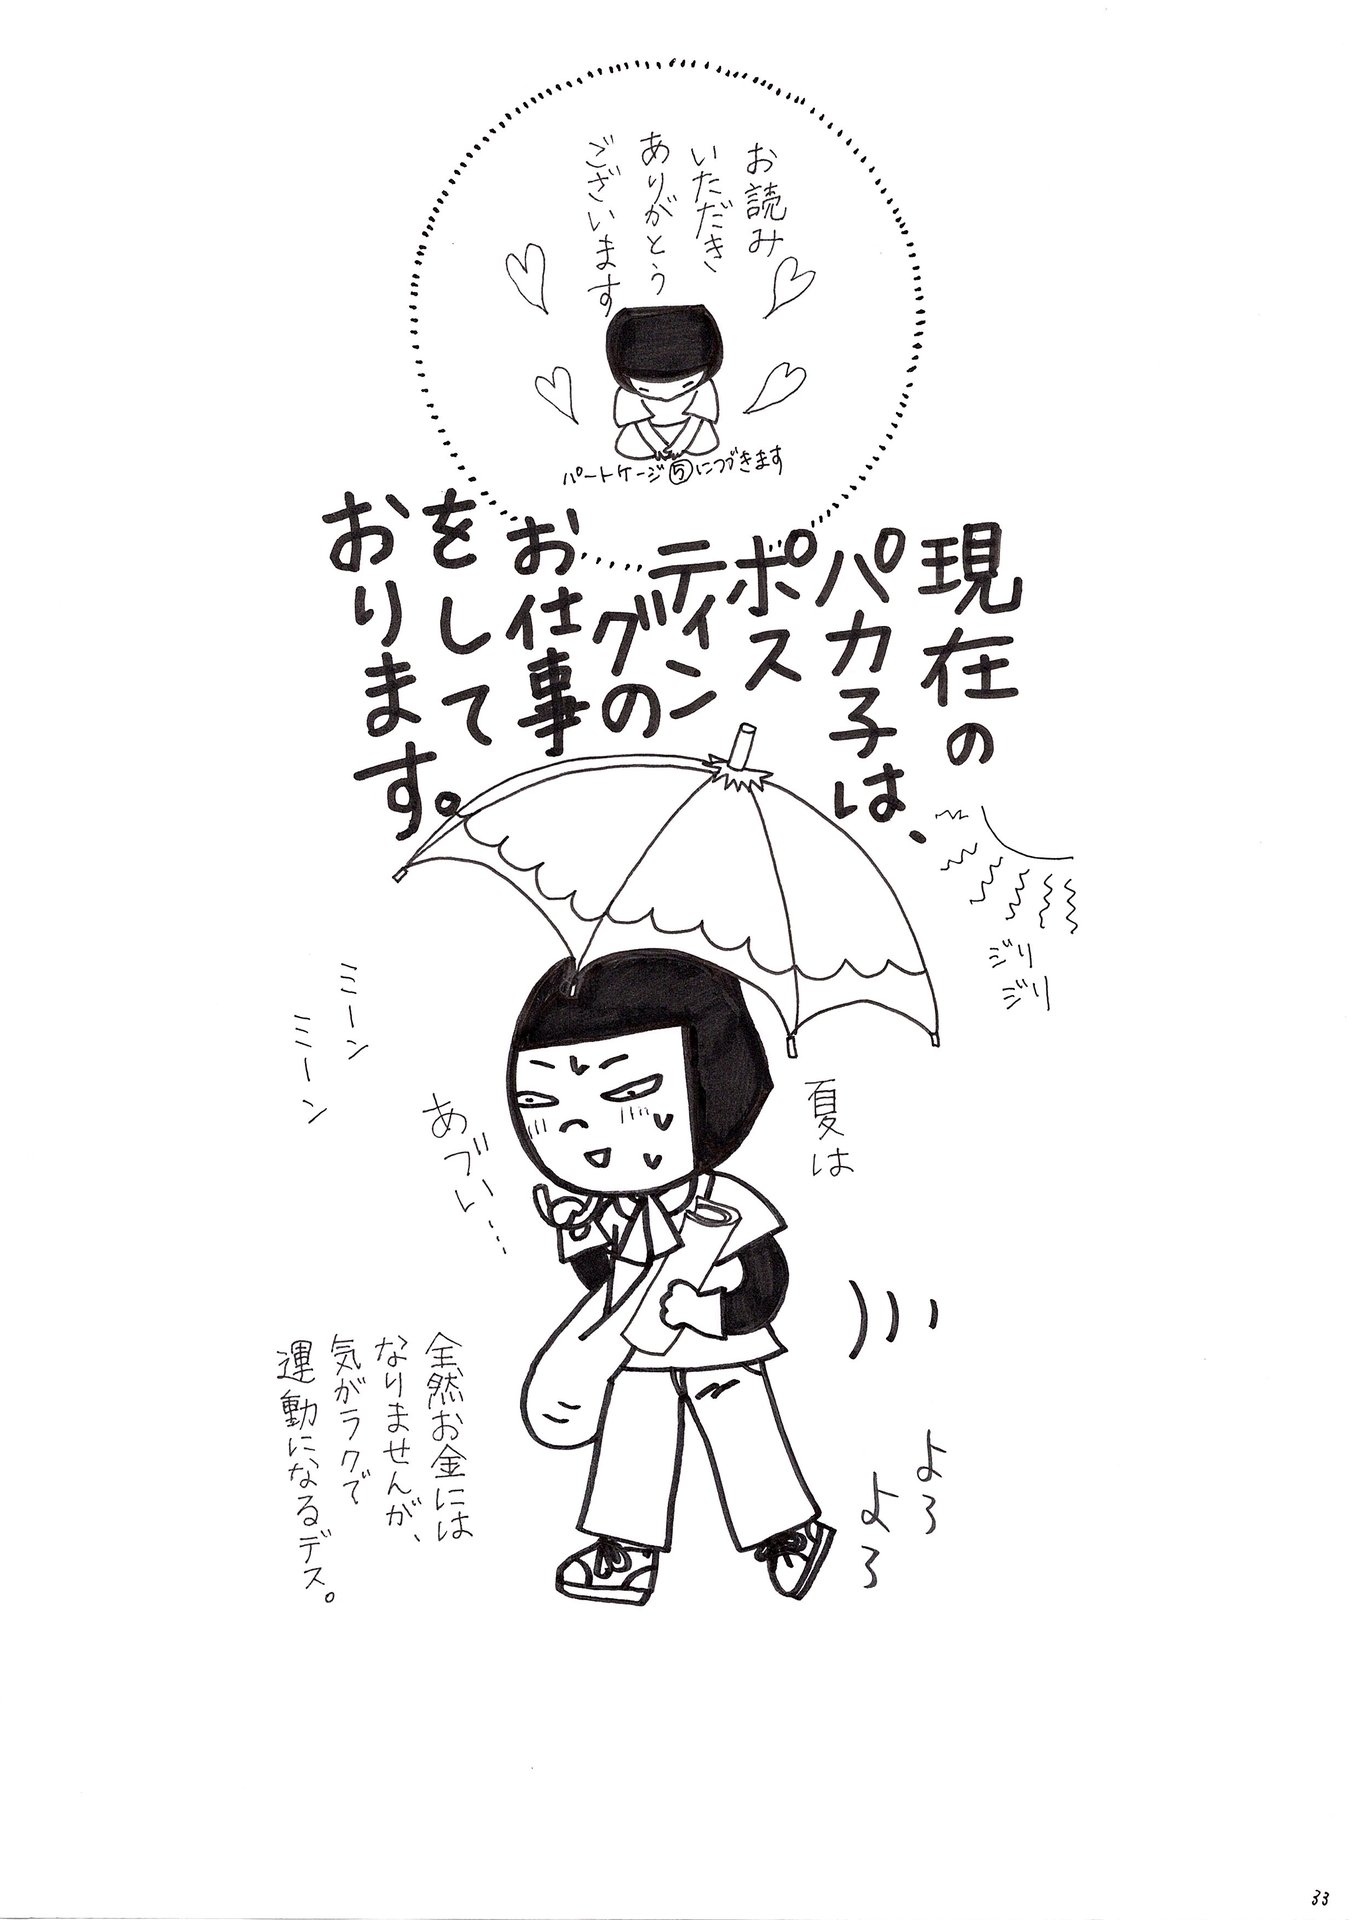 お読み
いただき、
ありがとう
ございます
パートケージ⑤につづきます
現在の
パカ子は、
ポス
ティン
グの
お仕事
をして
おります。
ジリ
ジリ
ミーン
ミーン
夏は
あづい…
よろ
よろ
全然お金には
なりませんが、
気がラクで
運動になるデス。
33